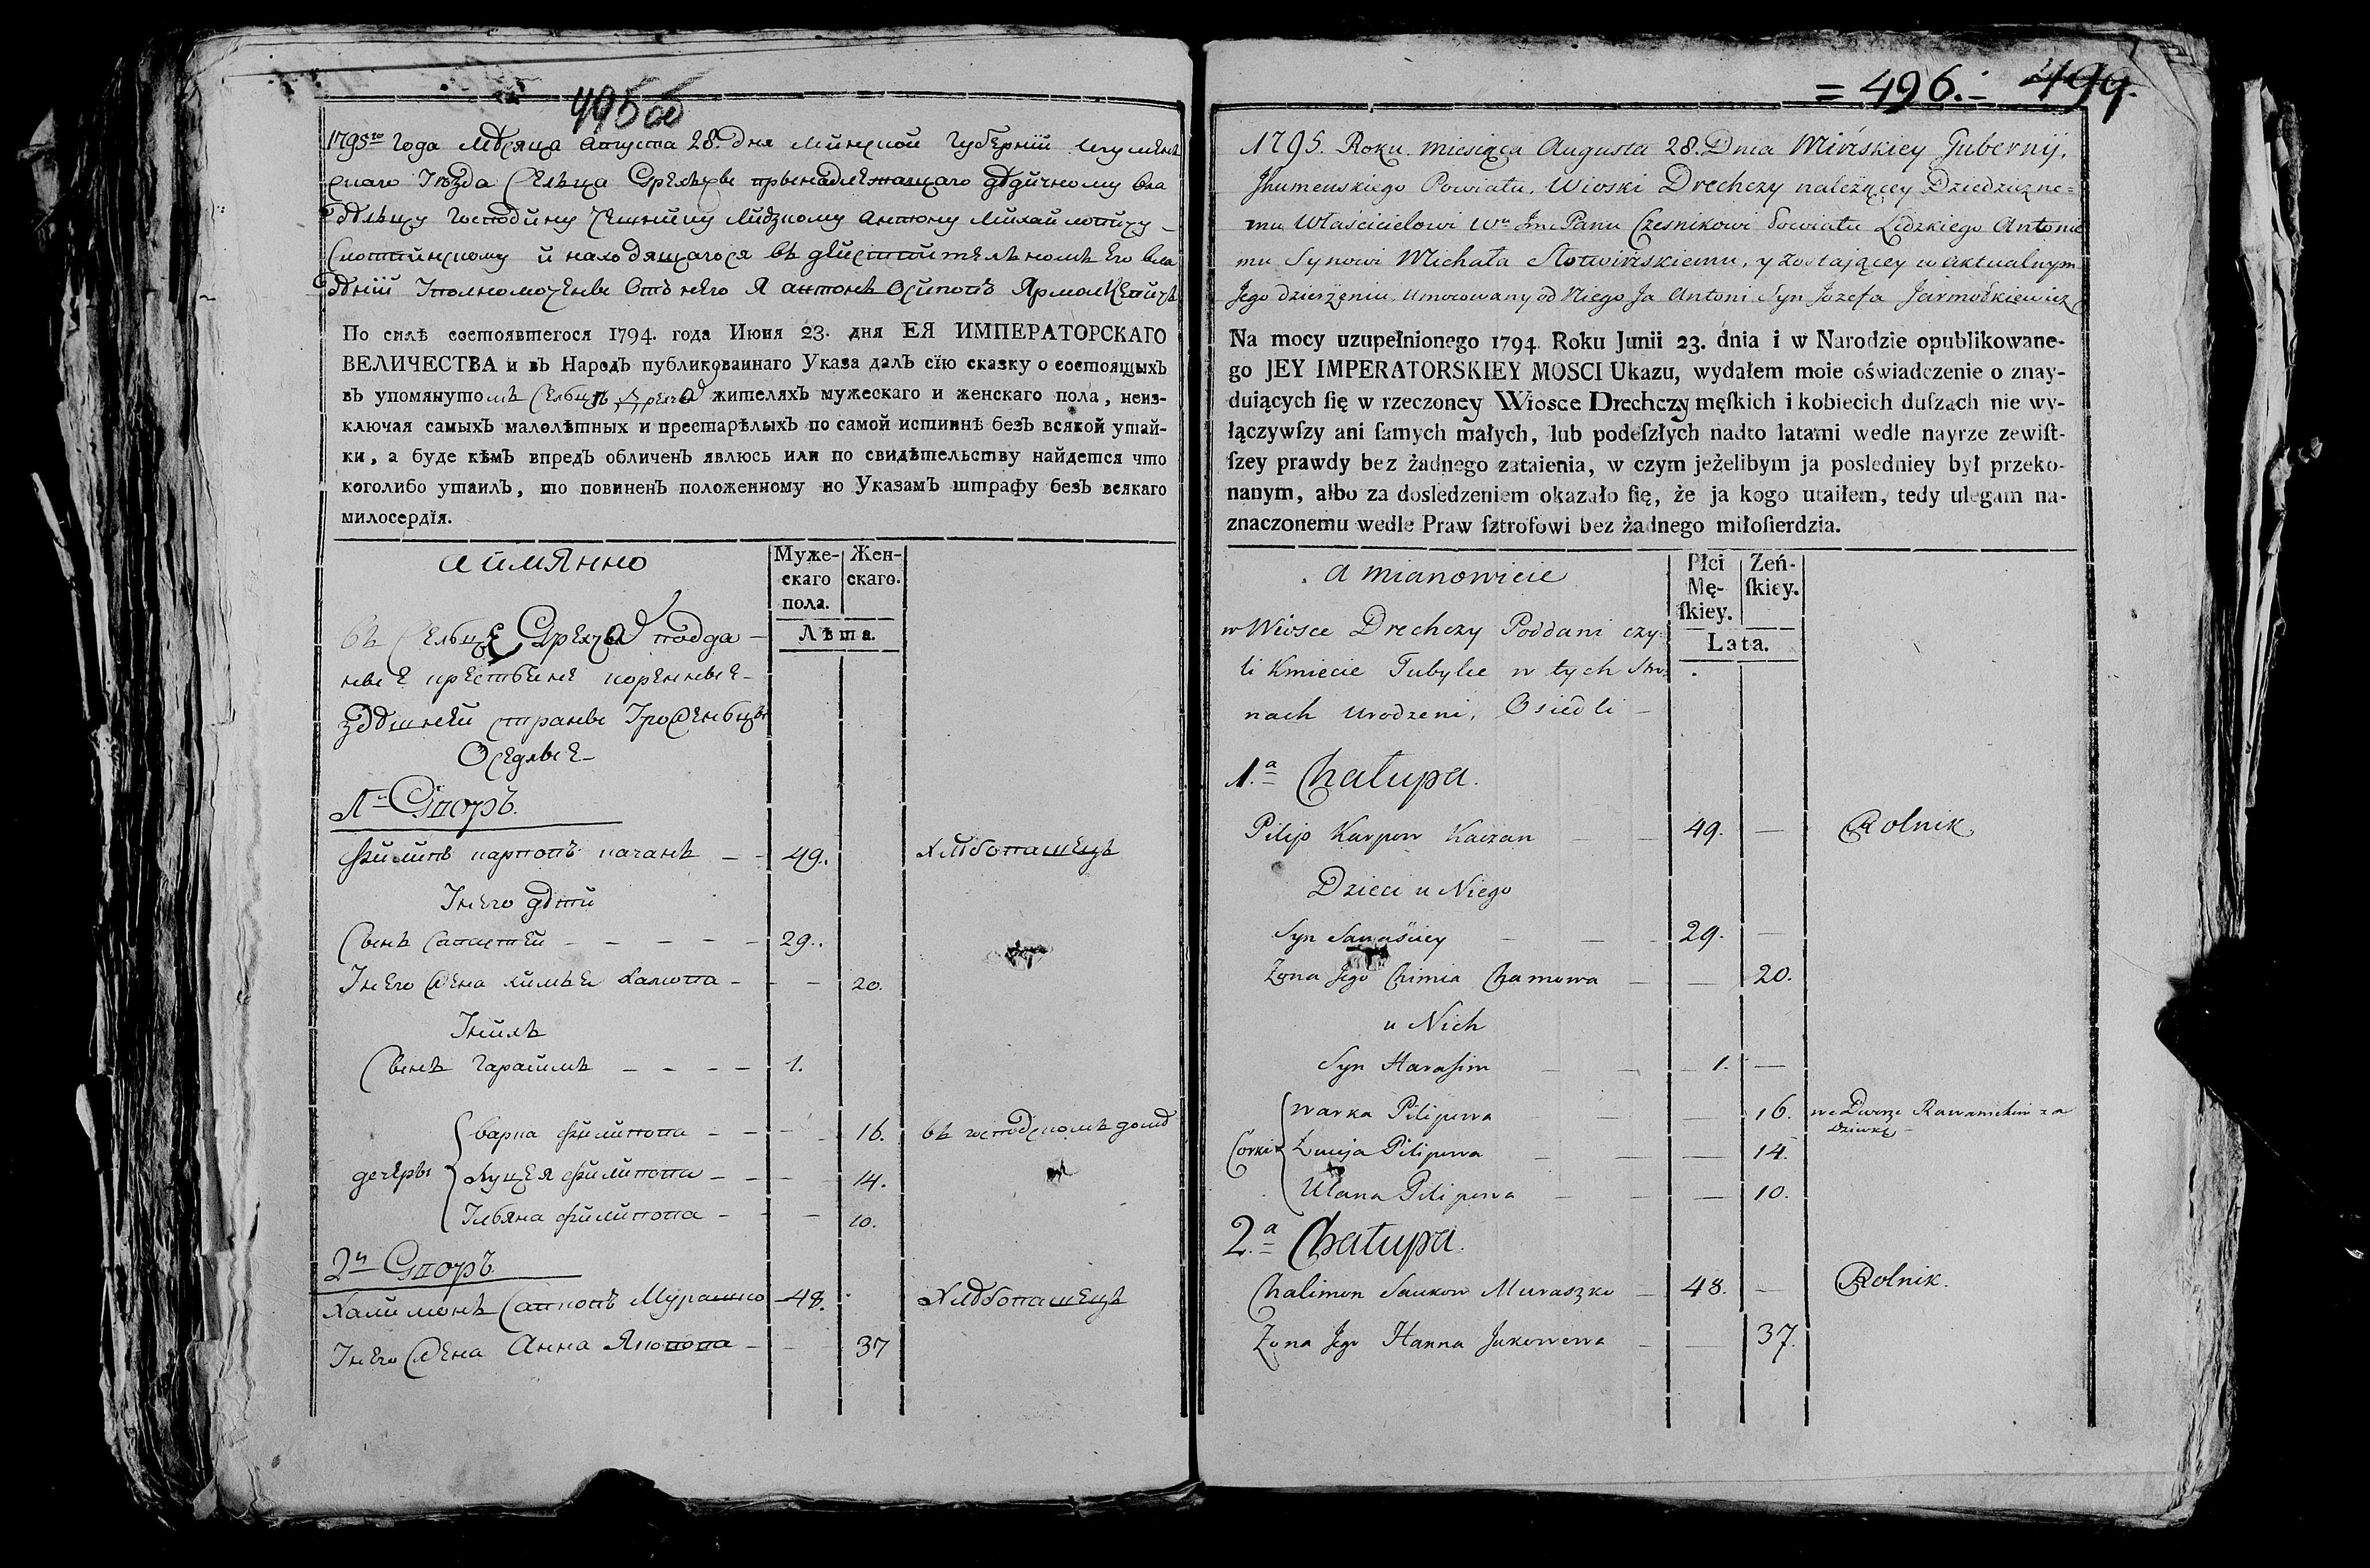 495об
1795го Года Мѣсяца Августа 28. Дня Минской Губернїи Игуменъ
скаго Уѣзда Сельца принадлежащаго дѣдичному вла
дѣльцу Господину Чешнику Лидзкому Антону Михайловичу
Слотвинскому и находящагося въ дѣйствительномъ Его вла
дѣнїи Уполномоченны Отъ него Я Антонъ Осиповъ Ярмолкевичъ
По силѣ состоявшегося 1794. года Июня 23. дня ЕЯ ИМПЕРАТОРСКАГО
ВЕЛИЧЕСТВА и въ Народъ публикованнаго Указа далъ сїю сказку о состоящыхъ
въ упомянутомъ жителяхъ мужескаго и женскаго пола, неиз-
ключая самыхъ малолѣтныхъ и престарѣлыхъ по самой истиннѣ безъ всякой утай-
ки, а буде кѣмъ впредъ обличенъ явлюсь или по свидѣтельству найдется что
коголибо утаилъ, то повиненъ положенному по Указамъ штрафу безъ всякаго
милосердїя.
а имянно
Муже-скаго пола.
Жен-скаго.
Лѣта.
въ подда-
ные крестьяне коренные
здѣшней страны Уроженьцы
Оседлые
1й Двор.
Филипъ Карповъ Качанъ 49. хлѣбопашецъ
Унего дѣти
Сынъ Савастей 29.
Унего жена Химья Хамова 20.
Унихъ
Сынъ Гарасимъ 1.
дочеры
Варка Филипова 16. въ господскомъ домѣ
Луцея Филипова 14.
Ульяна Филипова 10.
2й Двор.
Халимонъ Савковъ Мурашко 48. хлѣбопашецъ
Унего жена Анна Яковова 37
= 496. – 499.
1795. Roku. Miesiąca Augusta 28. Dnia Mińskiey Gubernij,
Jhumenskiego Powiatu, Wioski Drechczy należącey Dziedziczne=
mu Właścicielowi Wu Jm Panu Czesnikowi Powiatu Lidzkiego Antonie
mu Synowi Michała Słotwińskiemu, y zostającey w aktualnym
Jego dzierżeniu Umocowany od Niego Ja Antoni Syn Jozefa Jarmołkiewicz
Na mocy uzupełnionego 1794 Roku Junii 23. dnia i w Narodzie opublikowane-
go JEY IMPERATORSKIEY MOSCI Ukazu, wydałem moie oświadczenie o znay-
duiących ſię w rzeczoney Wiosce Drechczy męſkich i kobiecich duſzach nie wy-
łączywſzy ani ſamych małych, lub podeſzłych nadto latami wedle nayrze zewiſt-
ſzey prawdy bez żadnego zataienia, w czym jeżelibym ja posledniey był przeko-
nanym, albo za dosledzeniem okazało ſię, że ja kogo utaiłem, tedy ulegam na-
znaczonemu wedle Praw ſztrofowi bez żadnego miłoſierdzia.
a mianowicie
Płci Mę-ſkiey.
Zeń-ſkiey.
Lata.
w Wiosce Drechczy Poddani czy=
li Kmiecie Tubylce w tych Stro=
nach Urodzeni, Osiedli
1.a Chałupa.
Pilip Karpow Kaczan 49. — Rolnik
Dzieci u Niego
Syn Sawaściey 29. —
Żona Jego Chimia Chamowa — 20.
u Nich
Syn Harasim 1. —
Corki
Warka Pilipowa — 16. we Dworze Rawanickim za dziewkę
Łucyja Pilipowa — 14.
Ulana Pilipowa — 10.
2.a Chałupa.
Chalimon Saukow Muraszko 48. — Rolnik.
Żona Jego Hanna Jakowowa — 37.